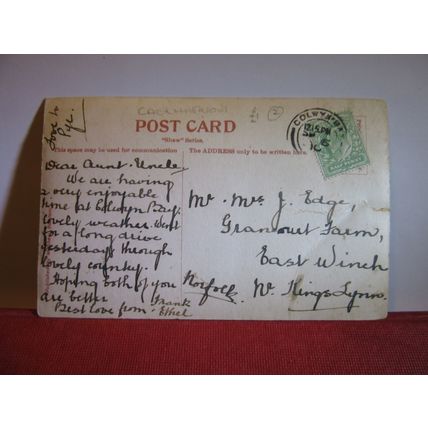 Love to
Pye.
CAERNARVON
£1
2
POST CARD
"Shaw" Series.
This space may be used for communication
The ADDRESS only to be written here.
COLWYN-BAY
Dear Aunt & Uncle
We are having
a very enjoyable
time at Colwyn Bay.
lovely weather. Went
for a long drive
yesterday through
lovely country.
Hoping both of you
are better
Best love from
Frank
Ethel
Mr. Mrs J. Edge,
Grancourt Farm,
East Winch
Nr. Kings Lynn.
Norfolk.